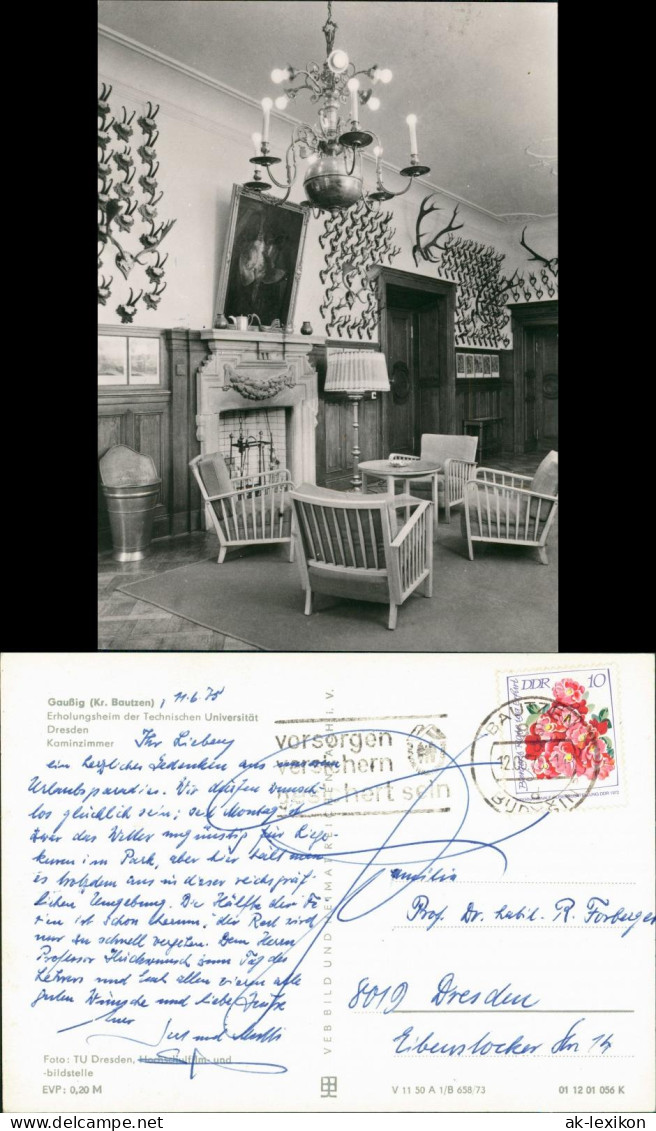 Gaußig (Kr. Bautzen) , 11.6.75
Erholungsheim der Technischen Universität
Dresden
Kaminzimmer
Ihr Lieben,
ein herzliches Gedenken aus
Urlaubsparadies. Wir dürfen wunsch-
los glücklich sein; seit Montag ist
zwar das Wetter ungünstig für Liege-
kuren im Park, aber hier hält man
es trotzdem aus in dieser reichsgräf-
lichen Umgebung. Die Hälfte der Fe-
rien ist schon herum, der Rest wird
nur zu schnell vergehen. Dem Herrn
Professor Glückwunsch zum Tag des
Lehrers und Euch allen vieren alle
guten Wünsche und liebe Grüße
Euer
und
Foto: TU Dresden, Hochschulfilm- und
-bildstelle
EVP: 0,20 M
VEB BILD UND HEIMAT REICHENBACH I. V.
vorsorgen
versichern
gesichert sein
DDR 10
BAUTZEN
Familie
Prof. Dr. habil. R. Forberger
8019 Dresden
Eibenstocker Str. 14
V 11 50 A 1/B 658/73
01 12 01 056 K
ak-lexikon.com